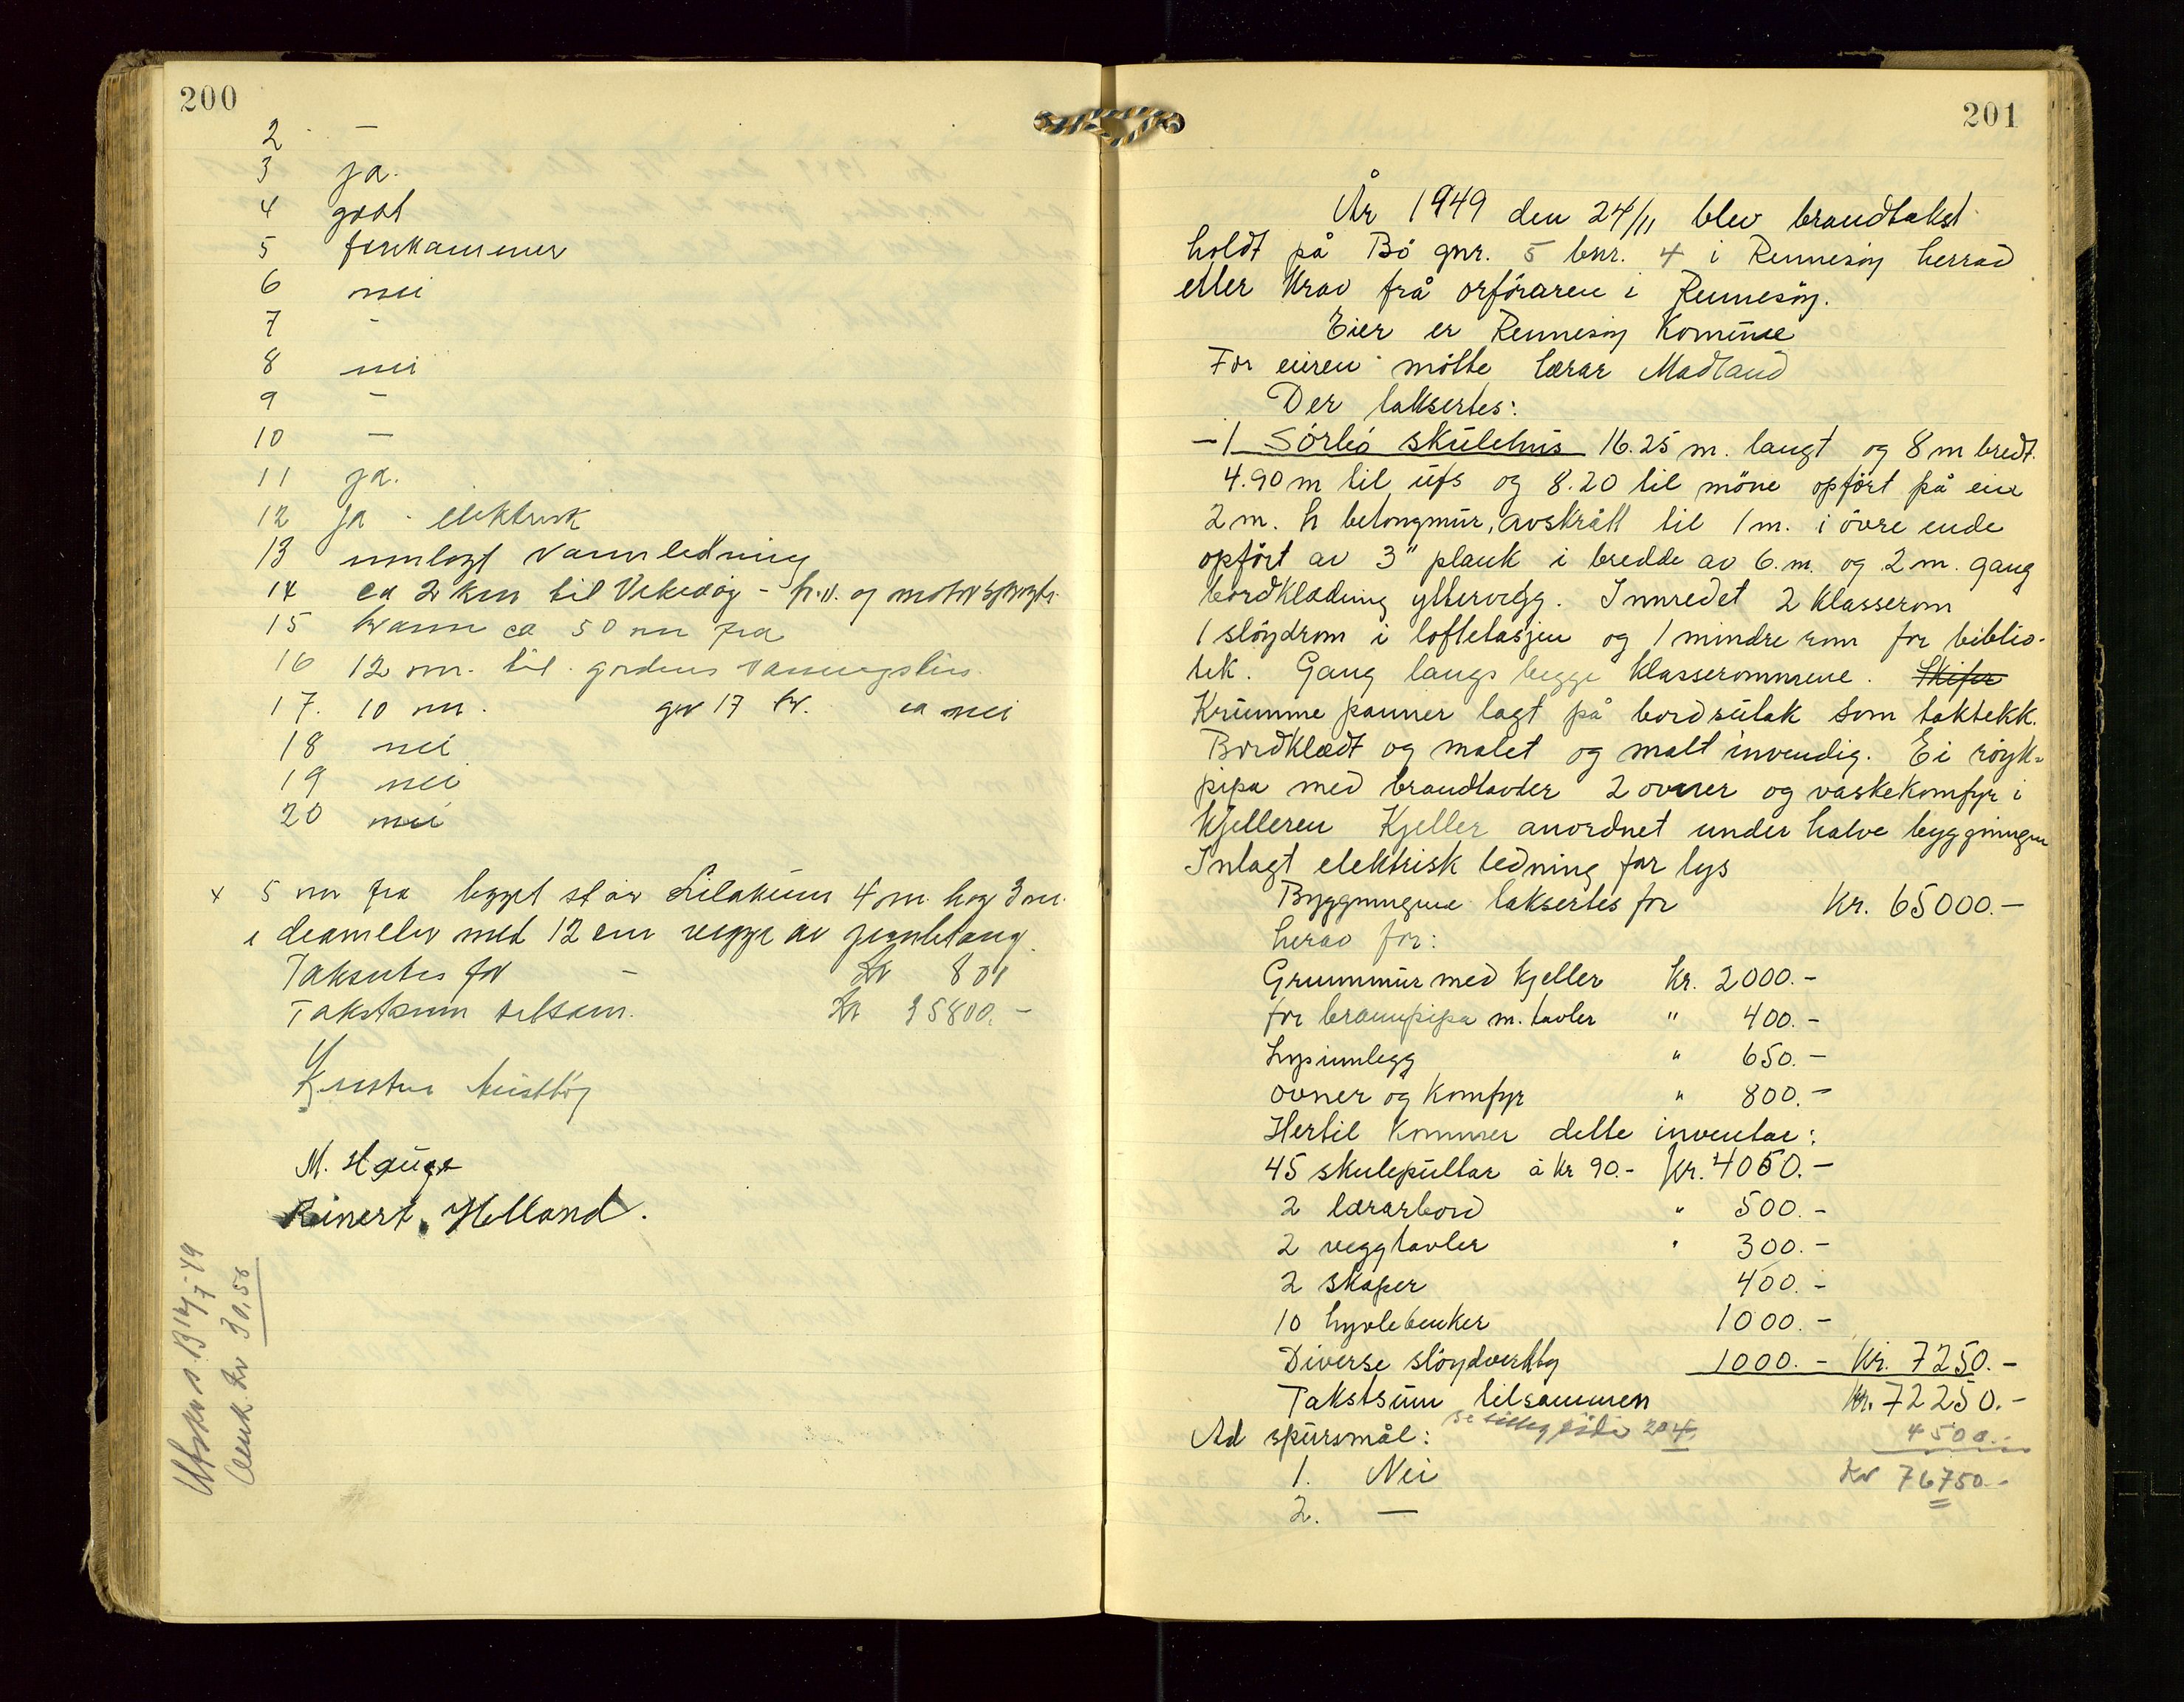 200
2 —
3 ja.
4 godt
5 forekammer
6 nei
7 -
8 nei
9 -
10 —
11 ja.
12 ja - elektrisk
13 innlagt vannledning
14 ca 2 km til Vikevåg - h.v. og motorsprøyte.
15 Vann ca 50 m fra
16 12 m. til gardens vaaningshus.
17. 10 m. gr 17 kv. ca nei
18 nei
19 nei
20 nei
x 5 m fra bygget står Silokum 4 m. høg 3 m.
i diameter med 12 cm vegger av jernbetong.
Taksertes for - Kr 800
Takstsum tilsam. Kr 35800.-
Kristen Austbø
M. Hauge
Reinert Helland.
Utskr. s. B 14/7-49
Avrek. kr 30,50
201
År 1949 den 24/11 blev brandtakst
holdt på Bö gnr. 5 bnr. 4 i Rennesöy herrad
etter krav frå orföraren i Rennesöy.
Eier er Rennesöy Komune
For eieren mötte lærar Madland
Der taksertes:
- 1 Sörbö skulehus 16.25 m. langt og 8 m bredt.
4.90 m til ufs og 8.20 til möne opfört på ein
2 m. h betongmur, avskrått til 1 m. i övre ende
opfört av 3" plank i bredde av 6. m. og 2 m. gang
bordklædning yttervegg. Innredet 2 klasserom
1 slöydrom i loftetasjen og 1 mindre rom for biblio-
tek. Gang langs begge klasserommene. Skifer
Krumme panner lagt på bordsutak som taktekk.
Bordklædt og malet og malt invendig. Ei röyk-
pipa med brandtavler 2 ovner og vaskekomfyr i
kjelleren Kjeller anordnet under halve byggningen
Inlagt elektrisk ledning for lys
Byggningene taksertes for Kr. 65000.-
herav for:
Grunnmur med kjeller kr. 2000.-
for brannpipa m. tavler " 400.-
Lysinnlegg " 650.-
ovner og komfyr " 800.-
Hertil kommer dette inventar:
45 skulepultar à kr 90.- kr. 4050.-
2 lærarbord " 500.-
2 veggtavler " 300.-
2 skaper 400.-
10 hyvlebenker 1000.-
Diverse slöydverkty 1000.- Kr. 7250.-
Takstsum tilsammen Kr. 72250.-
se tillegg side 204. 4500.-
Ad spursmål:
1. Nei Kr 76750.-
2. —